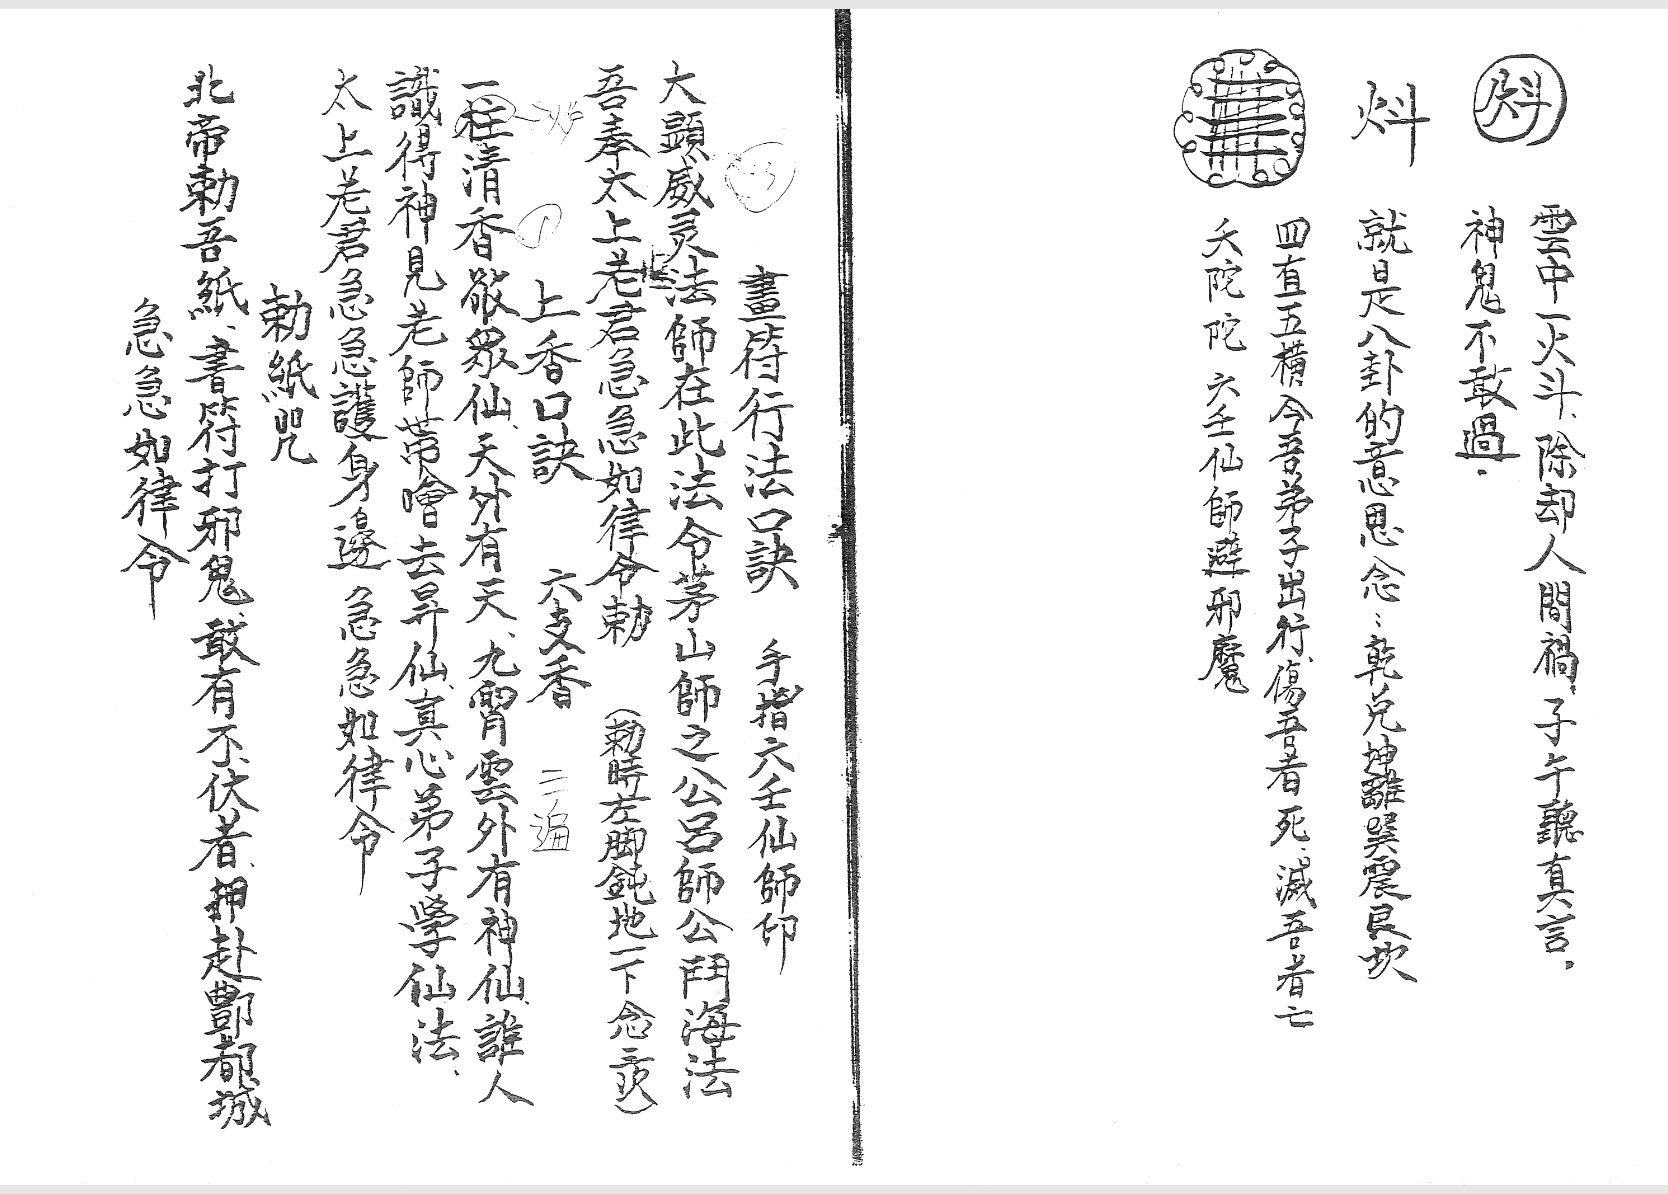 炓
雲中一火斗、除却人間禍、子午聽真言。
神鬼不敢過。
炓
就是八卦的意思 念：乾兌坤離巽震艮坎
四直五橫 今吾弟子出行、傷吾者死、滅吾者亡
天陀陀 六壬仙師避邪魔
畫符行法口訣 手指六壬仙師印
大顯威灵法師在此法令茅山師之公呂師公鬥海法
吾奉太上老君急急如律令勅 (勅時左脚鈍地一下念三次)
上香口訣 六支香 二遍
一柱清香敬眾仙、天外有天、九霄雲外有神仙、誰人
識得神見老師帶噲去昇仙、真心弟子學仙法、
太上老君急急護身邊 急急如律令
勅紙咒
北帝勅吾紙、書符打邪鬼、敢有不伏者、押赴酆都城
急急如律令